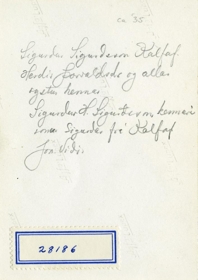 ca 35
Sigurður Sigurðsson Kálfaf.
Herdís Þorvaldsdr og allar
systur hennar
Sigurður kennari
sonur Sigurðar frá Kálfaf
Jón Viðis
28186